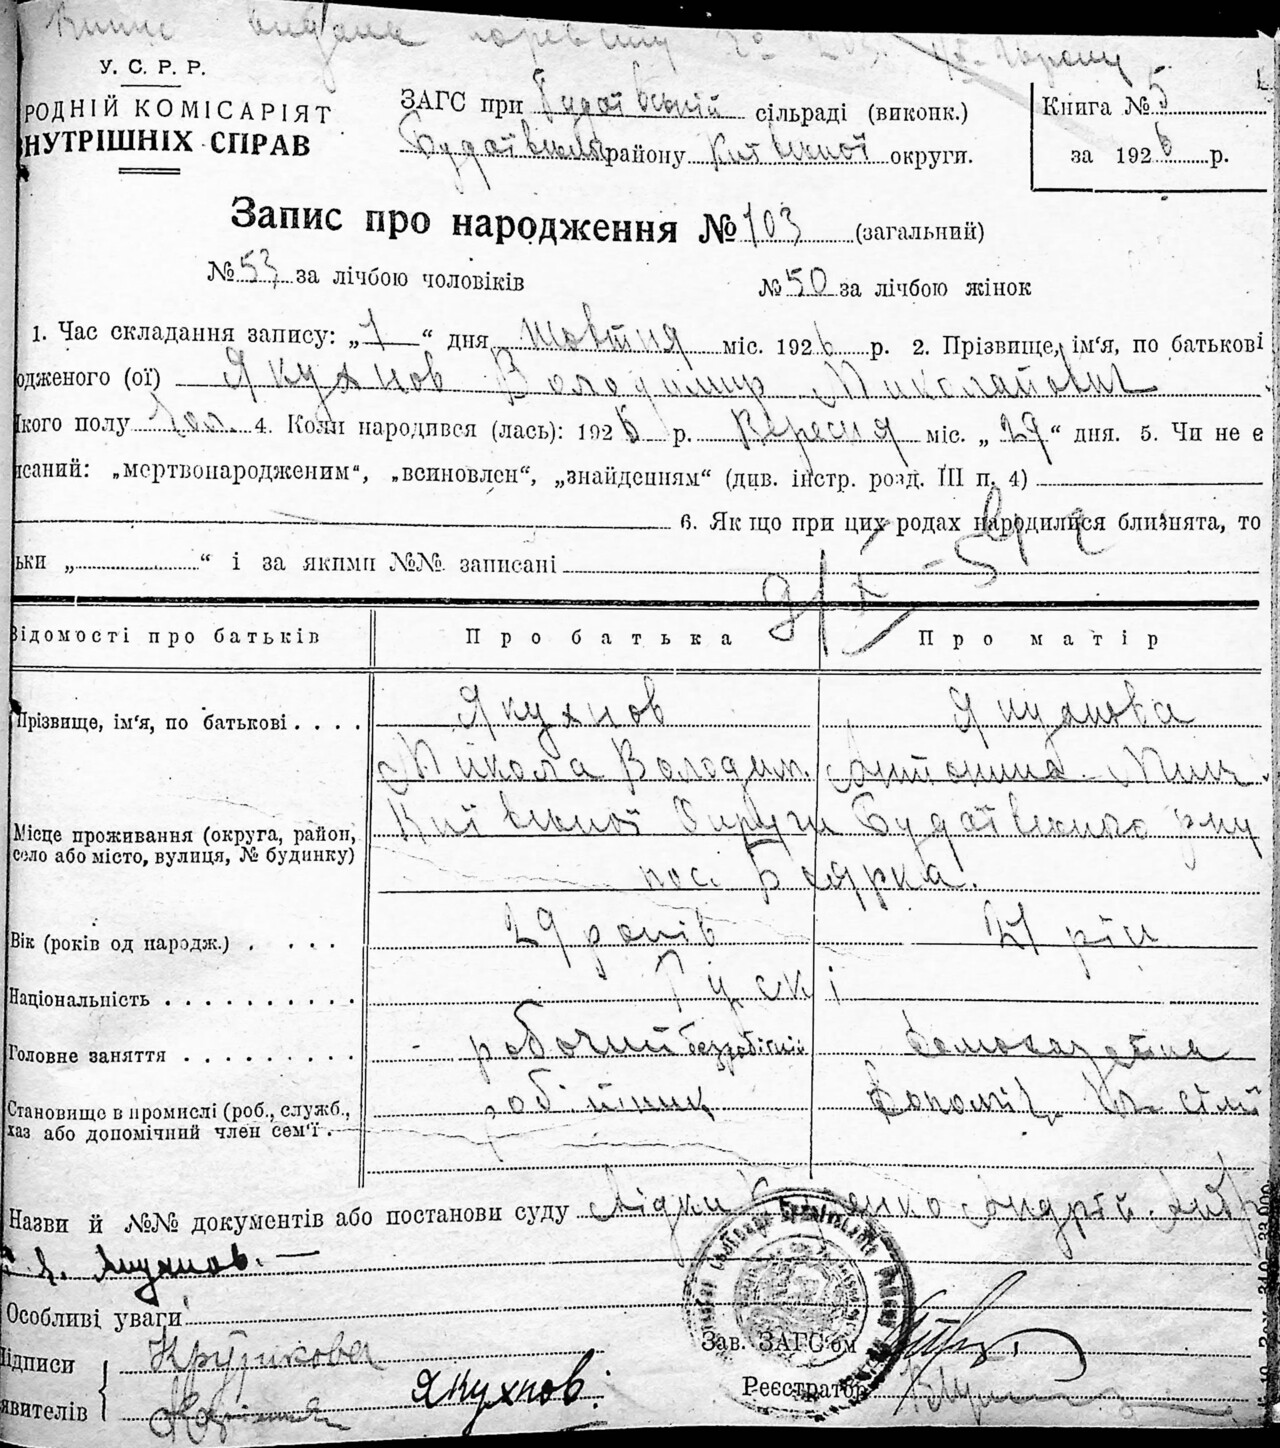 У. С. Р. Р.
РОДНІЙ КОМІСАРІЯТ
НУТРІШНІХ СПРАВ
ЗАГС при Будаївській сільраді (виконк.)
Будаївськ району Київської округи.
Книга № 5
за 1926 р.
Запис про народження № 103 (загальний)
№ 53 за лічбою чоловіків № 50 за лічбою жінок
1. Час складання запису: „1“ дня жовтня міс. 1926 р. 2. Прізвище, ім'я, по батькові
одженого (ої) Якухнов Володимир Миколайович
якого полу чол. 4. Коли народився (лась): 1926 р. Вересня міс. „29“ дня. 5. Чи не є
исаний: „мертвонародженим“, „всиновлен“, „знайденням“ (див. інстр. розд. III п. 4)
6. Як що при цих родах народилися близнята, то
ьки „ “ і за якими №№ записані
Відомості про батьків Про батька Про матір
Прізвище, ім'я, по батькові . . . . Якухнов Якухнова
Микола Володим. Антонина
Місце проживання (округа, район, село або місто, вулиця, № будинку) Київської Округи Будаївського р-ну
пос. Боярка.
Вік (років од народж.) . . . . 29 років 21 рік
Національність . . . . . . . . . . Рускі
Головне заняття . . . . . . . . . робочий безробітний домохазяйка
Становище в промислі (роб., служб.,
хаз або допоміжний член сем'ї .
Назви й №№ документів або постанови суду Андрій
Якухнов. —
Особливі уваги
ідписи
явителів
Якухнов.
Зав. ЗАГС'ом
Реєстратор